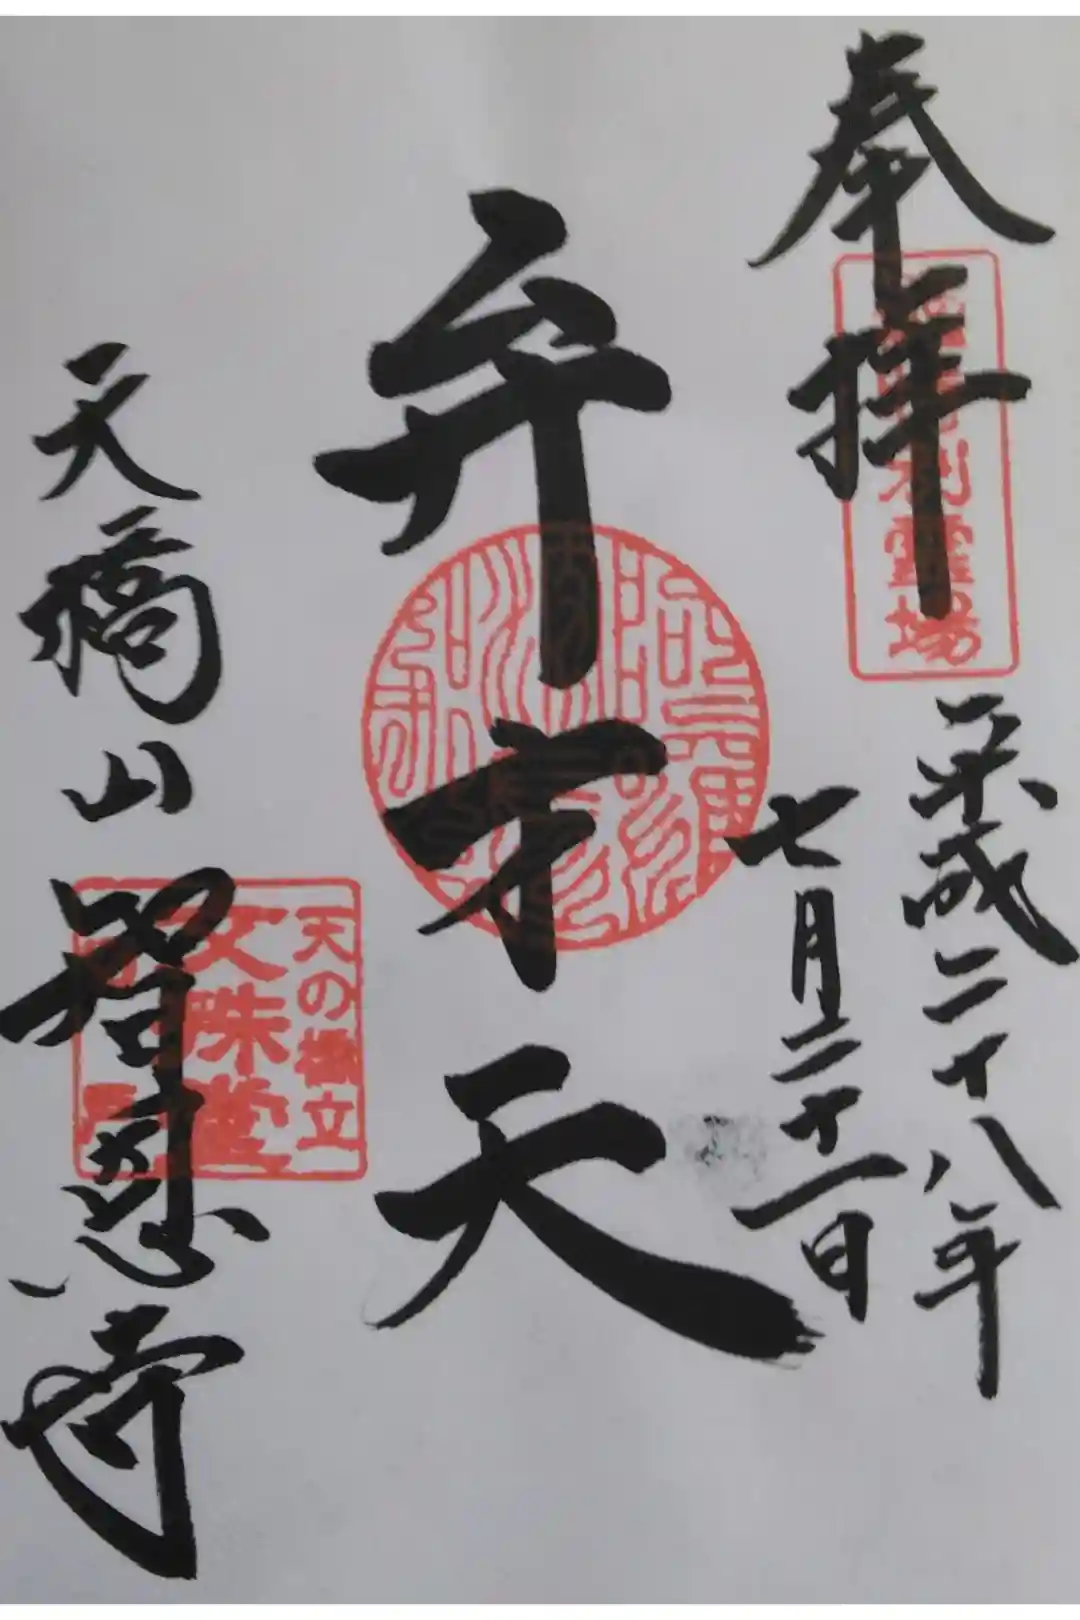 奉拝
平成二十八年
七月二十一日
弁才天
天橋山智恩寺
天の橋立
文殊堂
霊場